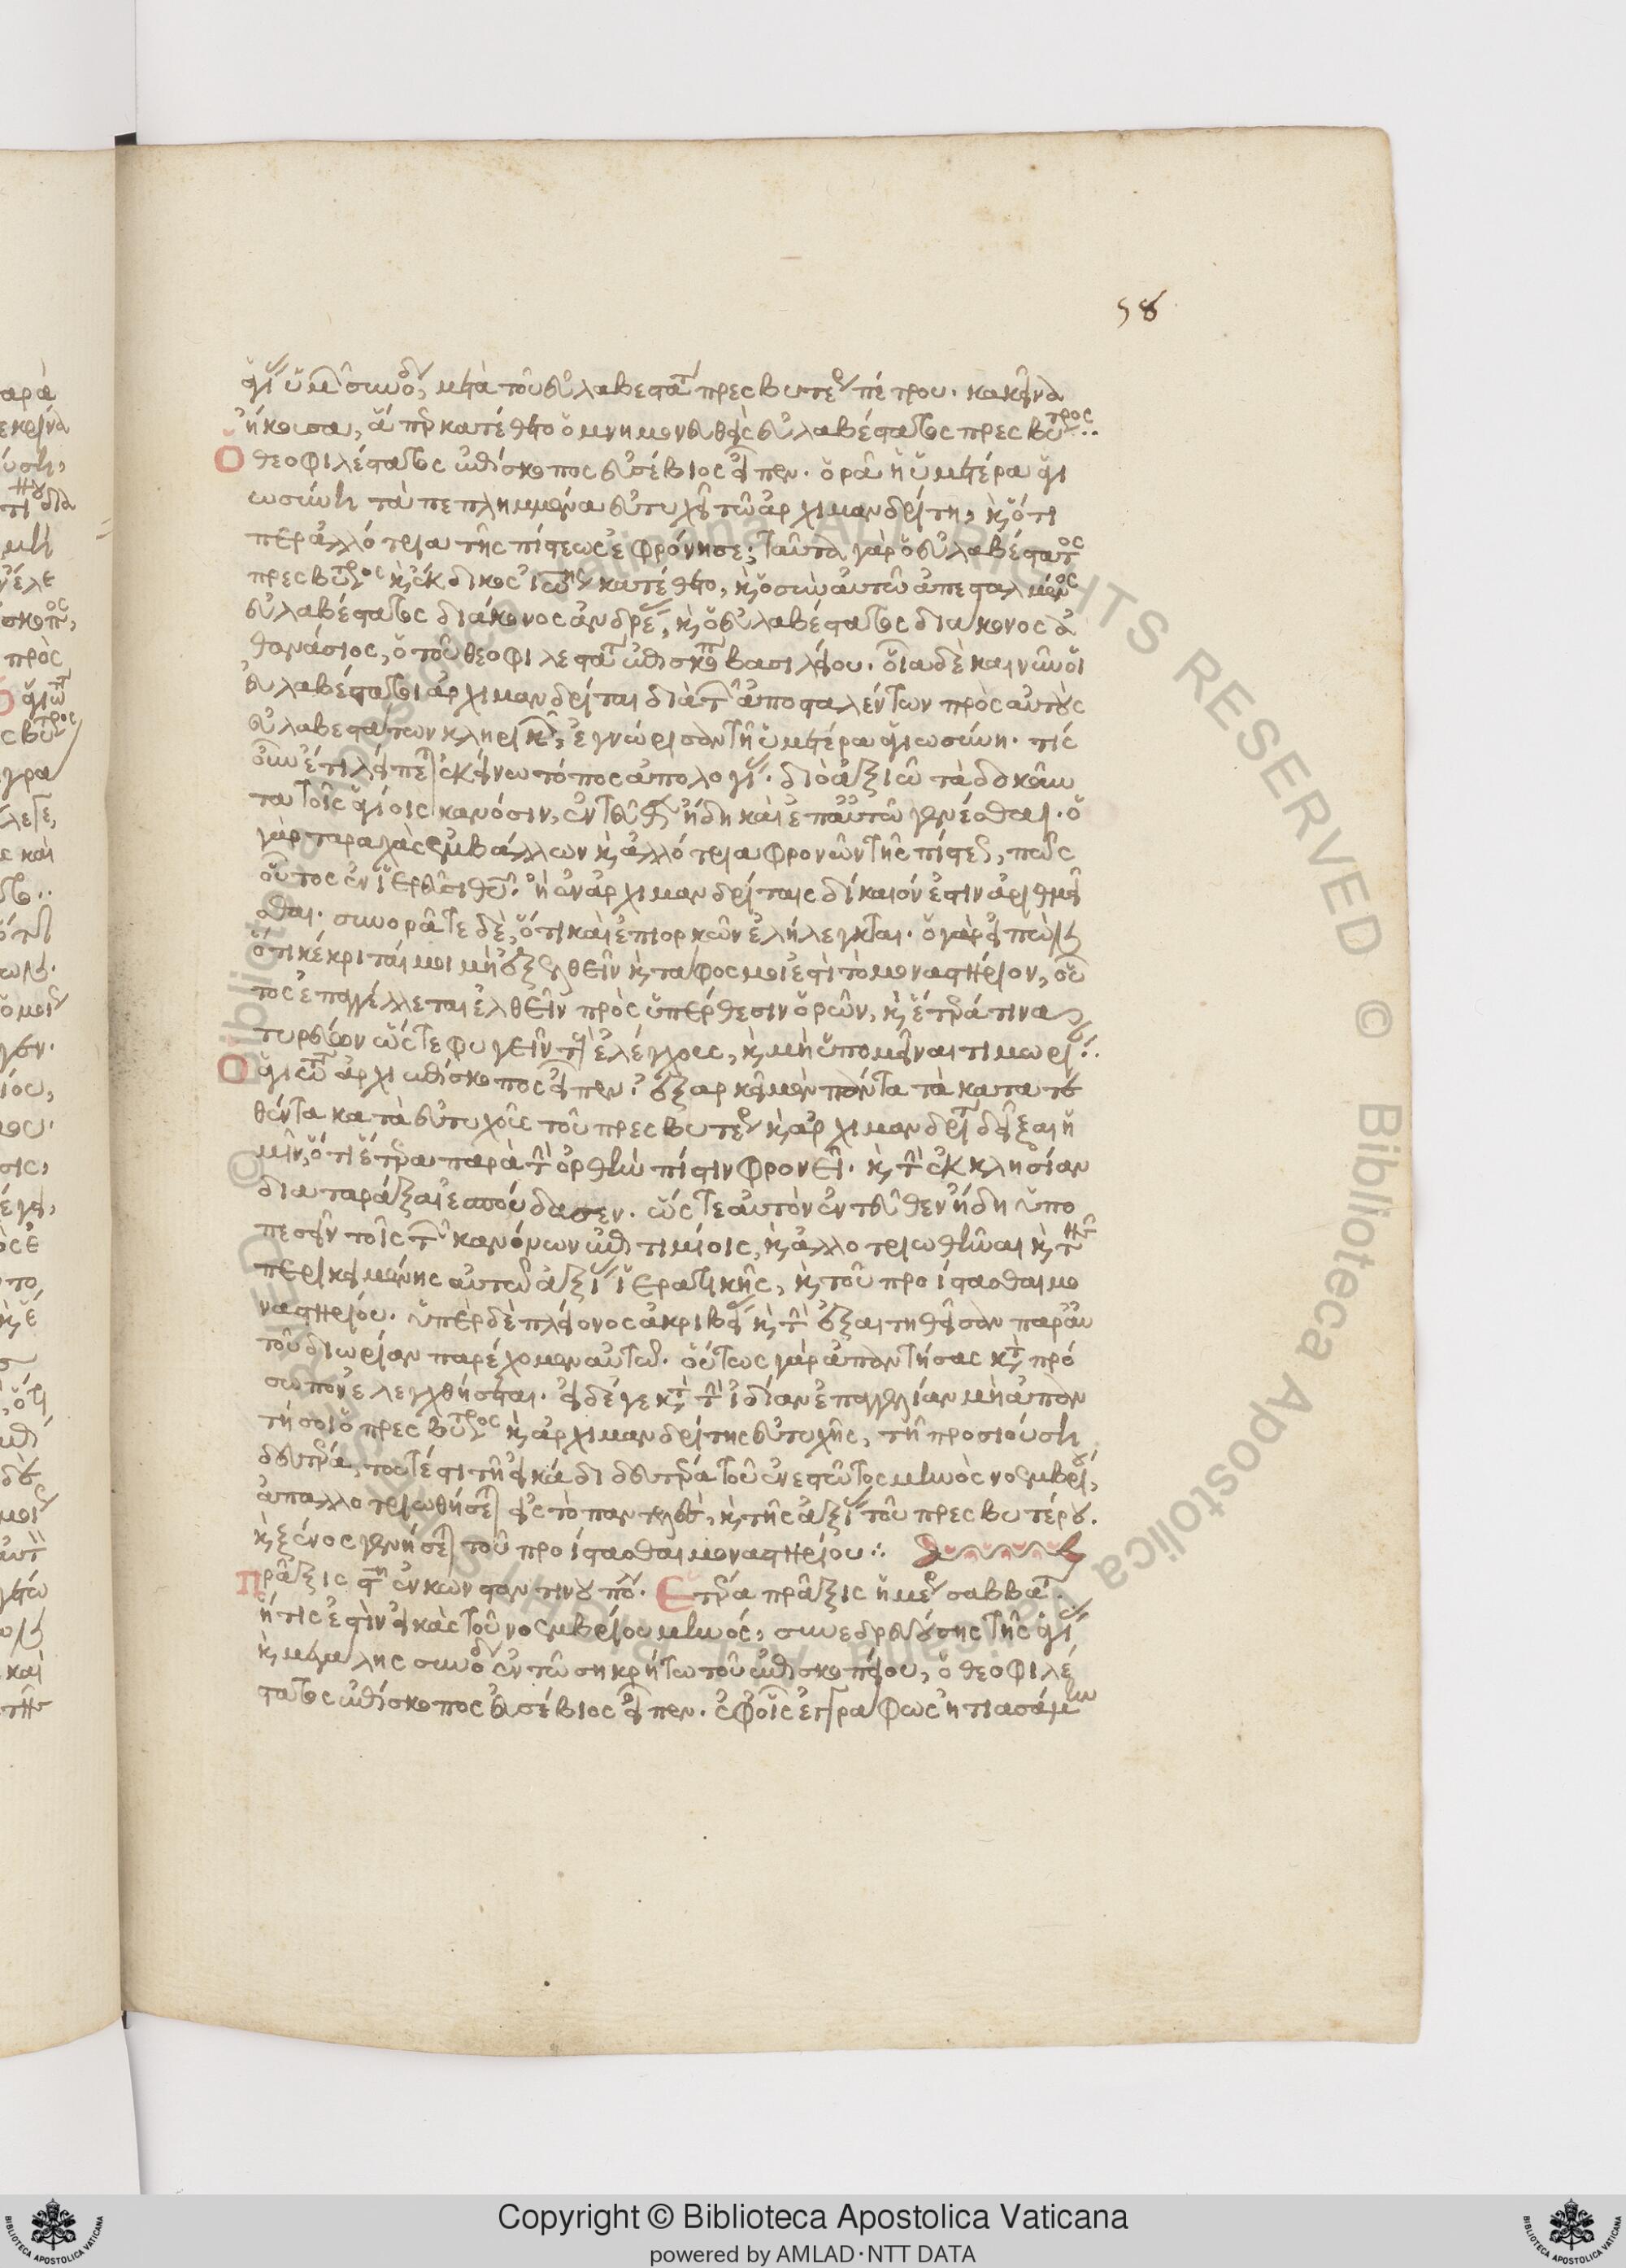 58
ἁγίας ὑμῶν συνόδου, μετὰ τοῦ εὐλαβεστάτου πρεσβυτέρου πέτρου. κἀκεῖνα
ἤκουσα, ἅπερ κατέθετο ὁ μνημονευθεὶς εὐλαβέστατος πρεσβύτερος.
Ὁ θεοφιλέστατος ἐπίσκοπος εὐσέβιος εἶπεν. ὁρᾷ ἡ ὑμετέρα ἁγι
ωσύνη τὰ πεπλημμελημένα εὐτυχεῖ τῷ ἀρχιμανδρίτη, καὶ ὅτι
περ ἀλλότρια τῆς πίστεως ἐφρόνησε; ταῦτα γὰρ ὁ εὐλαβέστατος
πρεσβύτερος καὶ ἔκδικος ἰωάννης κατέθετο, καὶ ὁ σὺν αὐτῷ ἀπεσταλμένος
εὐλαβέστατος διάκονος ἀνδρέας, καὶ ὁ εὐλαβέστατος διάκονος ἀ
θανάσιος, ὁ τοῦ θεοφιλεστάτου ἐπισκόπου βασιλείου. οἷα δὲ καὶ νῦν οἱ
εὐλαβέστατοι ἀρχιμανδρίται διὰ τῶν ἀποσταλέντων πρὸς αὐτοὺς
εὐλαβεστάτων κληρικῶν, ἐγνώρισαν τῇ ὑμετέρα ἁγιωσύνη. τίς
οὖν ἔτι λείπεται ἐκείνω τόπος ἀπολογίας. διὸ ἀξιῶ τὰ δοκοῦν
τα τοῖς ἁγίοις κανόσιν, ἐντεῦθεν ἤδη καὶ ἐπ' αὐτῷ γενέσθαι. ὁ
γὰρ ταραχὰς ἐμβάλλων καὶ ἀλλότρια φρονῶν τῆς πίστεως, πῶς
οὗτος ἐν ἱερεῦσι θεοῦ ἢ ἐν ἀρχιμανδρίταις δίκαιόν ἐστιν ἀριθμεῖ
σθαι. συνορᾶτε δὲ, ὅτι καὶ ἐπιορκῶν ἐλήλεγκται. ὁ γὰρ εἰπὼν
ὅτι κέκριταί μοι μὴ ἐξελθεῖν καὶ τάφος μοι ἐστὶ τὸ μοναστήριον, οὗ
τος ἐπαγγέλλεται ἐλθεῖν πρὸς ὑπέρθεσιν ὁρῶν, καὶ ἕτερά τινα
τυρεύων ὥστε φυγεῖν τοὺς ἐλέγχους, καὶ μὴ ὑπομεῖναι τιμωρίας.
Ὁ ἁγιώτατος ἀρχιεπίσκοπος εἶπεν. ἐξαρκεῖ μὲν πάντα τὰ κατατε
θέντα κατὰ εὐτυχοῦς τοῦ πρεσβυτέρου καὶ ἀρχιμανδρίτου δεῖξαι ἡ
μῖν, ὅτι ἕτερα παρὰ τὴν ὀρθὴν πίστιν φρονεῖ. καὶ τὴν ἐκκλησίαν
διαταράξαι ἐσπούδασεν. ὥστε αὐτὸν ἐντεῦθεν ἤδη ὑπο
πεσεῖν τοῖς τῶν κανόνων ἐπιτιμίοις, καὶ ἀλλοτριωθῆναι καὶ τῆς
περικειμένης αὐτῷ ἀξίας ἱερατικῆς, καὶ τοῦ προίστασθαι μο
ναστηρίου. ὑπὲρ δὲ πλείονος ἀκριβείας καὶ τὴν ἐξαιτηθεῖσαν παρ' αὐ
τοῦ διωρίαν παρέχομεν αὐτῷ. οὕτως γὰρ ἀπαντήσας κατὰ πρό
σωπον ἐλεγχθήσεται. εἰ δέ γε κατὰ τὴν ἰδίαν ἐπαγγελίαν μὴ ἀπαν
τήσοι ὁ πρεσβύτερος καὶ ἀρχιμανδρίτης εὐτυχὴς, τῇ προσιούση
δευτέρα, τουτέστι τῇ εἰκάδι δευτέρα τοῦ ἐνεστῶτος μηνὸς νοεμβρίου,
ἀπαλλοτριωθήσεται εἰς τὸ παντελὲς, καὶ τῆς ἀξίας τοῦ πρεσβυτέρου.
καὶ ξένος γενήσεται τοῦ προίστασθαι μοναστηρίου:
Πρᾶξις ἐν κωνσταντινουπόλει. Ἑτέρα πρᾶξις ἡμέρα σαββάτου.
ἥτις ἐστὶν εἰκὰς τοῦ νοεμβρίου μηνός, συνεδρευούσης τῆς ἁγίας
καὶ μεγάλης συνόδου ἐν τῷ σηκρήτω τοῦ ἐπισκοπείου, ὁ θεοφιλέ
στατος ἐπίσκοπος εὐσέβιος εἶπεν. ἐφ' οἷς ἐγγράφως ἠτιασάμην
Copyright © Biblioteca Apostolica Vaticana
powered by AMLAD·NTT DATA